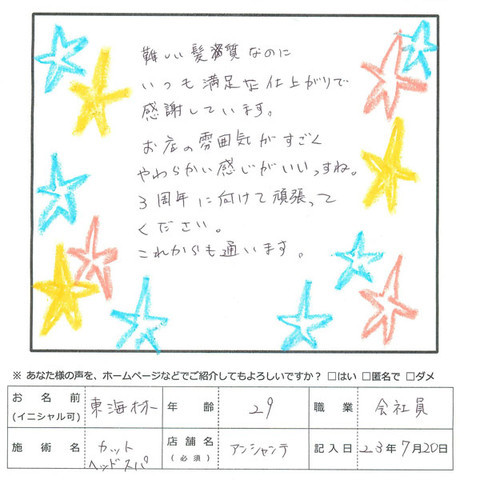 難しい髪質なのに
いつも満足な仕上がりで
感謝しています。
お店の雰囲気がすごく
やわらかい感じがいいっすね。
3周年に向けて頑張って
ください。
これからも通います。
※ あなた様の声を、ホームページなどでご紹介してもよろしいですか？ □はい □匿名で □ダメ
お名前 (イニシャル可) 東海林 年齢 29 職業 会社員
施術名 カット ヘッドスパ 店舗名 (必須) アンシャンテ 記入日 23年7月20日